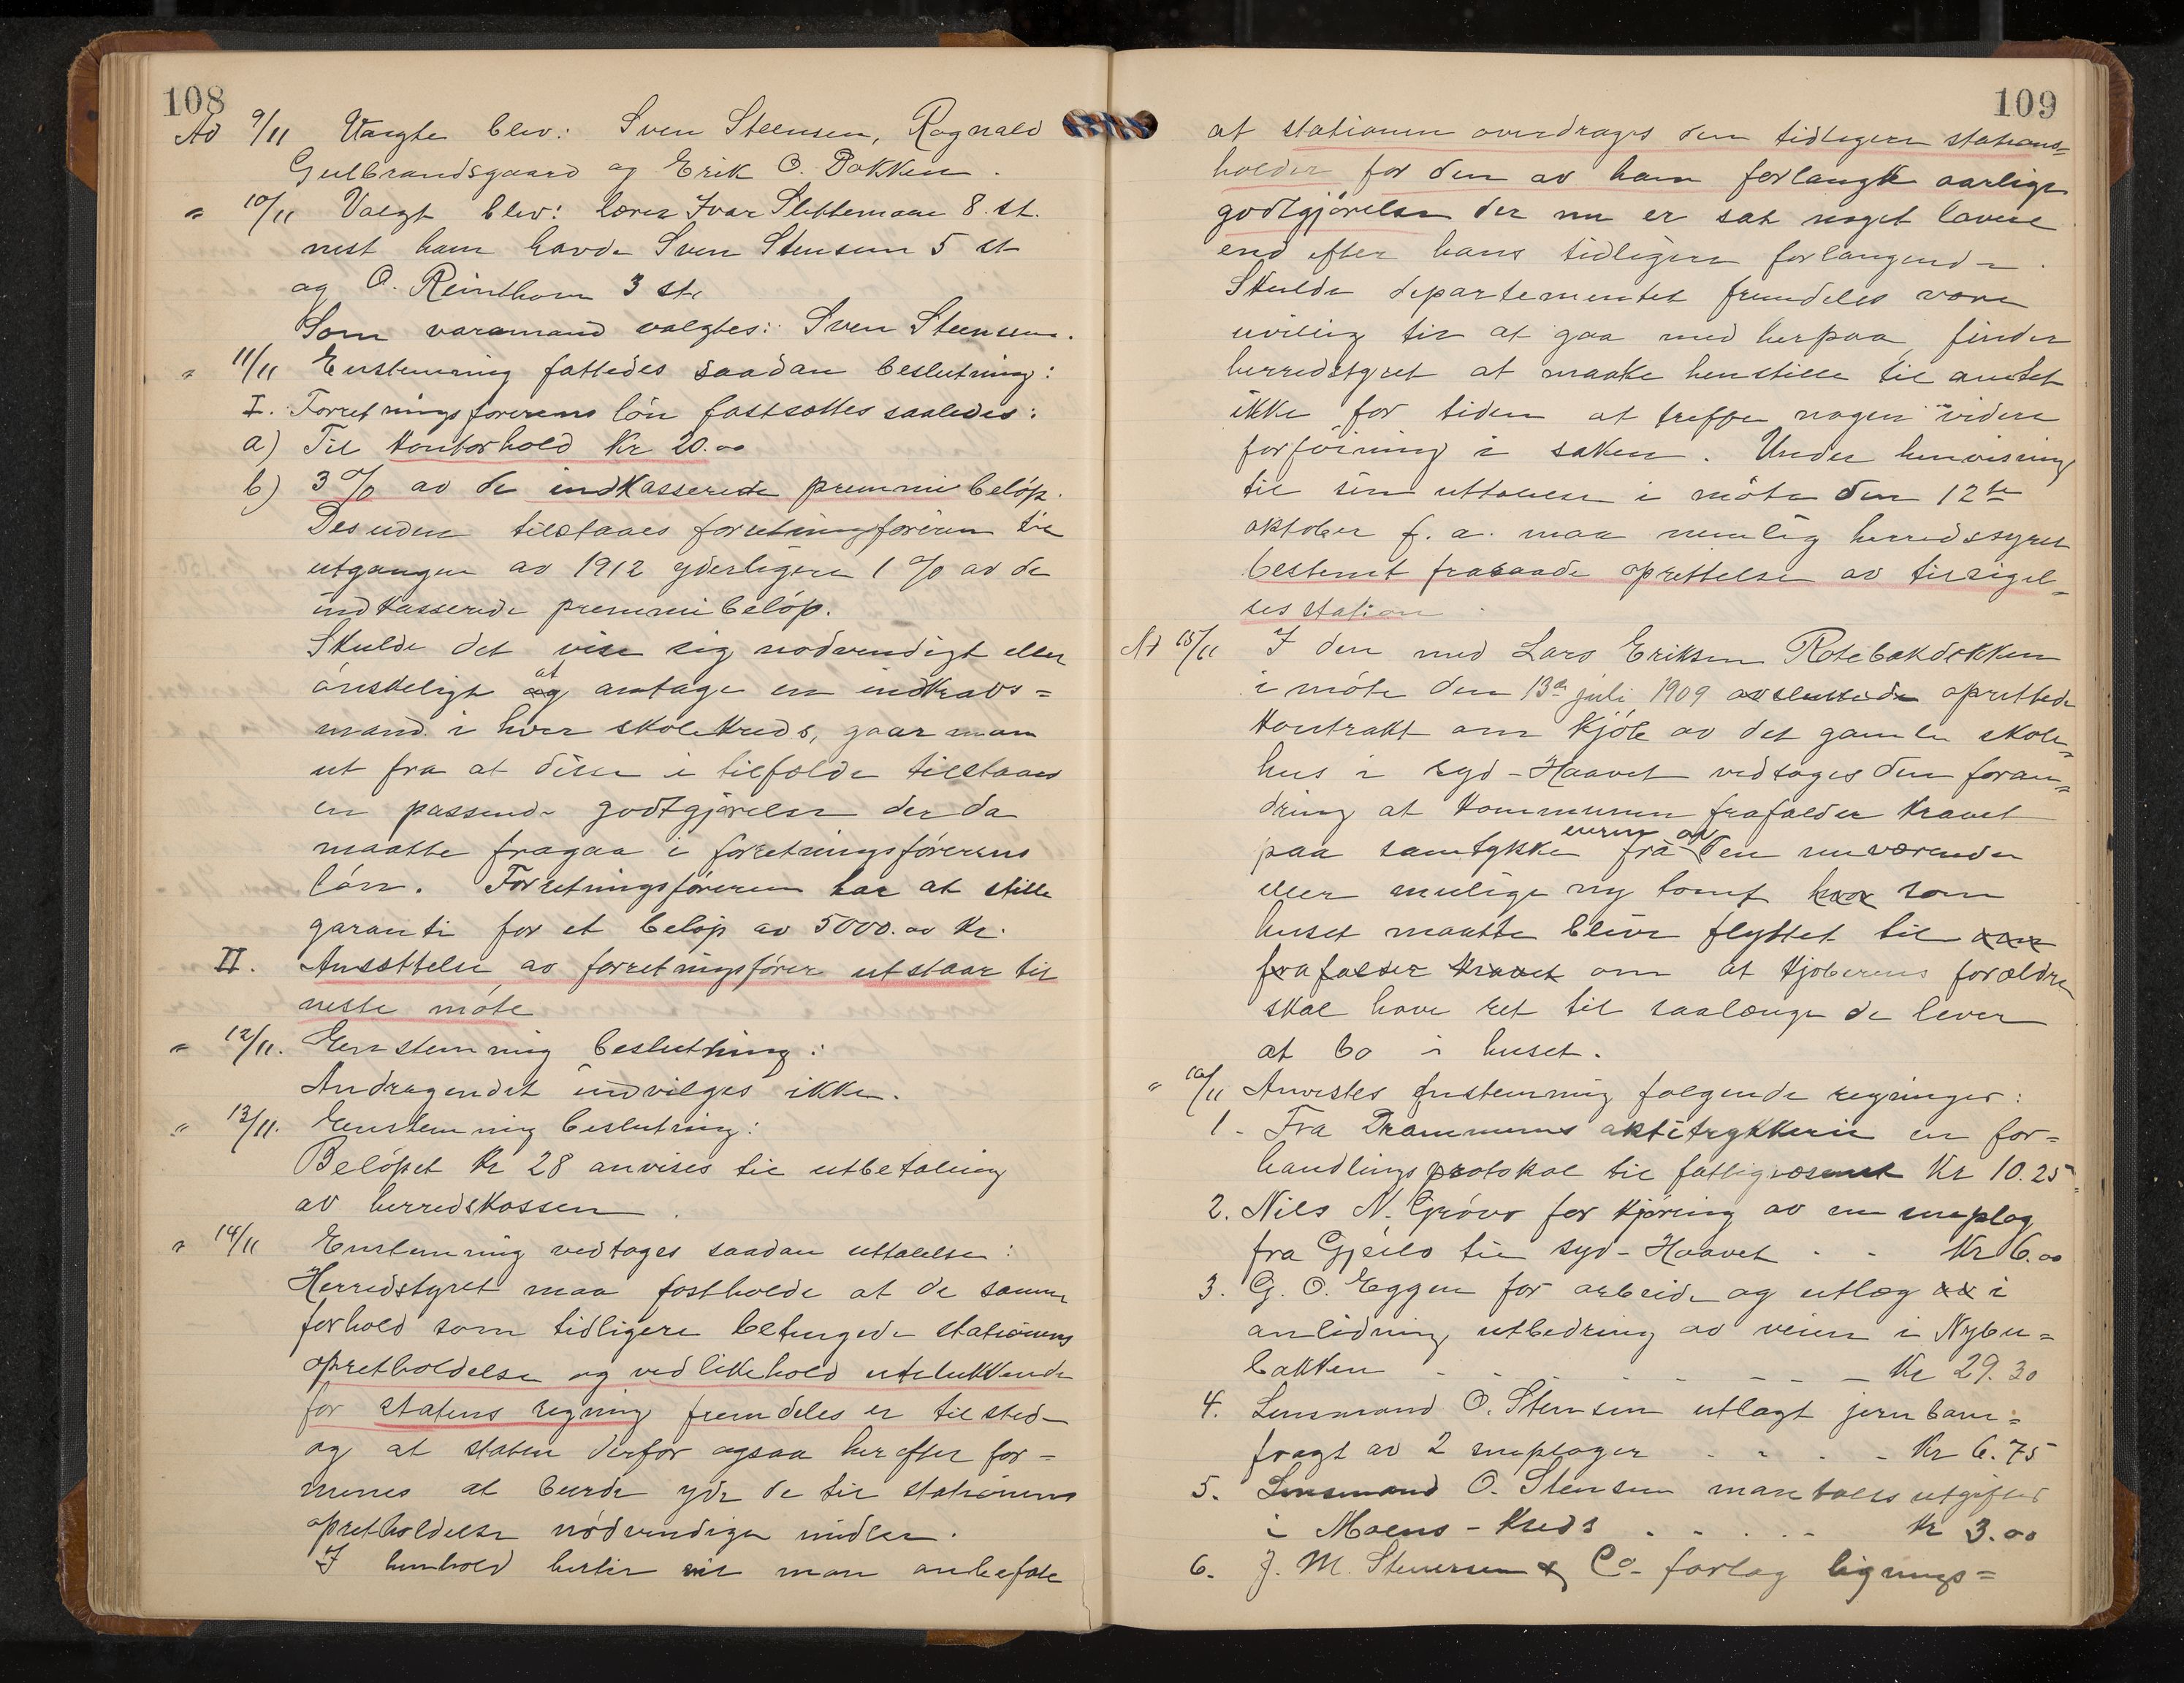 108
Ad 9/11 Valgte blev: Sven Steensen, Ragnald
Gulbrandsgaard og Erik O. Bakken.
" 10/11 Valgt blev: lærer Ivar Slettemoen 8 st.
nest ham havde Sven Stensen 5 st
og O. Reinthon 3 st.
Som varamand valgtes: Sven Steensen.
" 11/11 Enstemmig fattedes saadan beslutning:
I. Forretningsförerens lön fastsættes saaledes:
a) Til kontorhold Kr 20.00
b) 3% av de indkasserede premiebelöp.
Desuden tilstaaes forretningsföreren til
utgangen av 1912 yderligere 1% av de
indkasserede premiebelöp.
Skulde det vise sig nødvendigt eller
önskeligt at antage en indkrævs=
mand i hver skolekreds, gaar man
ut fra at disse i tilfælde tilstaaes
en passende godtgjörelse der da
maatte fragaa i forretningsförerens
lön. Forretningsföreren har at stille
garanti for et belöp av 5000.00 kr.
II. Ansættelse av forretningsförer utstaar til
neste möte
" 12/11. Enstemmig beslutning:
Andragendet indvilges ikke.
" 13/11. Enstemmig beslutning:
Belöpet kr 28 anvises til utbetaling
av herredskassen.
" 14/11 Enstemmig vedtoges saadan uttalelse:
Herredstyret maa fastholde at de samme
forhold som tidligere betingede stationens
opretholdelse og vedlikehold utelukkende
for statens regning fremdeles er tilsted-
og at staten derfor ogsaa herefter for=
menes at burde yde de til stationens
opretholdelse nödvendige midler.
I henhold hertil vil man anbefale
109
at stationen overdrages den tidligere stations=
holder for den av ham forlangte aarlige
godtgjörelse der nu er sat noget lavere
end efter hans tidligere forlangende.
Skulde departementet fremdeles være
uvillig til at gaa med herpaa, finder
herredstyret at maatte henstille til amtet
ikke for tiden at treffe nogen videre
forföining i saken. Under henvisning
til sin uttalelse i möte den 12te
oktober f. a. maa nemlig herredsstyret
bestemt fraraade oprettelse av tilsigel=
ses station.
Ad 15/11 I den med Lars Eriksen Rotebakdokken
i möte den 13de juli 1909 avsluttede oprettede
kontrakt om kjöb av det gamle skole=
hus i syd-Haavet vedtoges den foran=
dring at kommunen frafalder kravet
paa samtykke fra eieren av den nuværende
eller mulige ny tomt hvor som
huset maatte blive flyttet til
frafalder kravet om at kjöberens forældre
skal have ret til saalænge de lever
at bo i huset.
" 16/11 Anvistes enstemmig følgende regninger:
1. Fra Drammens aktietrykkeri en for=
handlingsprotokol til fattigvæsenet Kr 10.25
2. Nils N. Grövo for kjöring av en sneplog
fra Gjeilo til syd-Haavet - - Kr 6.00
3. G. O. Eggen for arbeide og utlæg i
anledning utbedring av veien i Nybu=
bakken - - - - - - - - Kr 29.30
4. Lensmand O. Stensen utlagt jernbane=
fragt av 2 sneploger - - - - Kr 6.75
5. Lensmand O. Stensen manntalls utgifter
i Moens-kreds - - - - - Kr 3.00
6. J. M. Stenersen & Co forlag lignings=